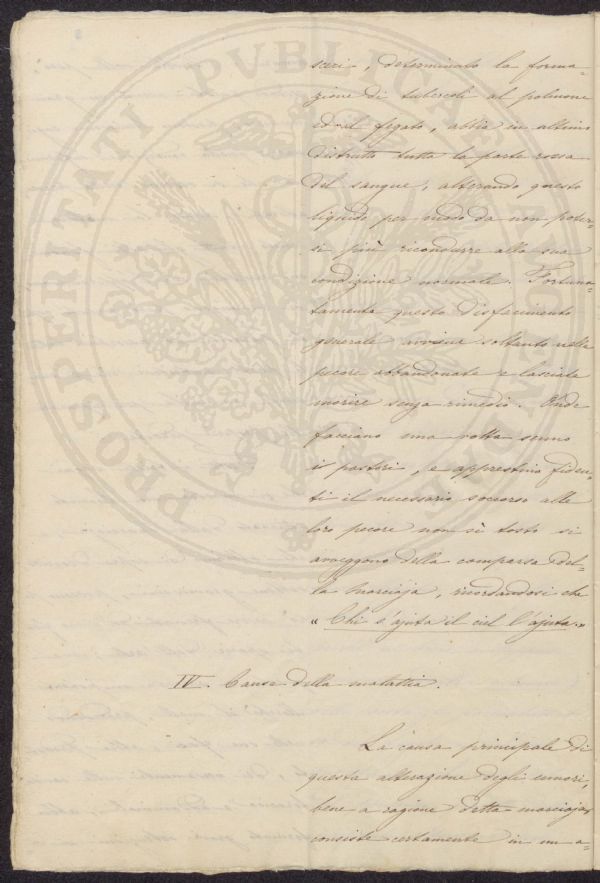 sceri, determinato la forma=
zione di tubercoli al polmone
ed il fegato, abbia in ultimo
distrutto tutta la parte rossa
del sangue, alterando questo
liquido per modo da non poter=
si più ricondurre alla sua
condizione normale. Fortuna=
tamente questo disfacimento
generale avviene soltanto nelle
pecore abbandonate e lasciate
morire senza rimedio. Onde
facciano una volta senno
i pastori, e apprestino fiden=
ti il necessario soccorso alle
loro pecore non sì tosto si
avveggono della comparsa del=
la Marciaja, ricordandosi che
« Chi s'ajuta il ciel l'ajuta. »
IV. Cause della malattia.
La causa principale di
questa alterazione degli umori,
bene a ragione detta marciaja
consiste certamente in un a=
PROSPERITATI PVBLICAE AVGENDAE